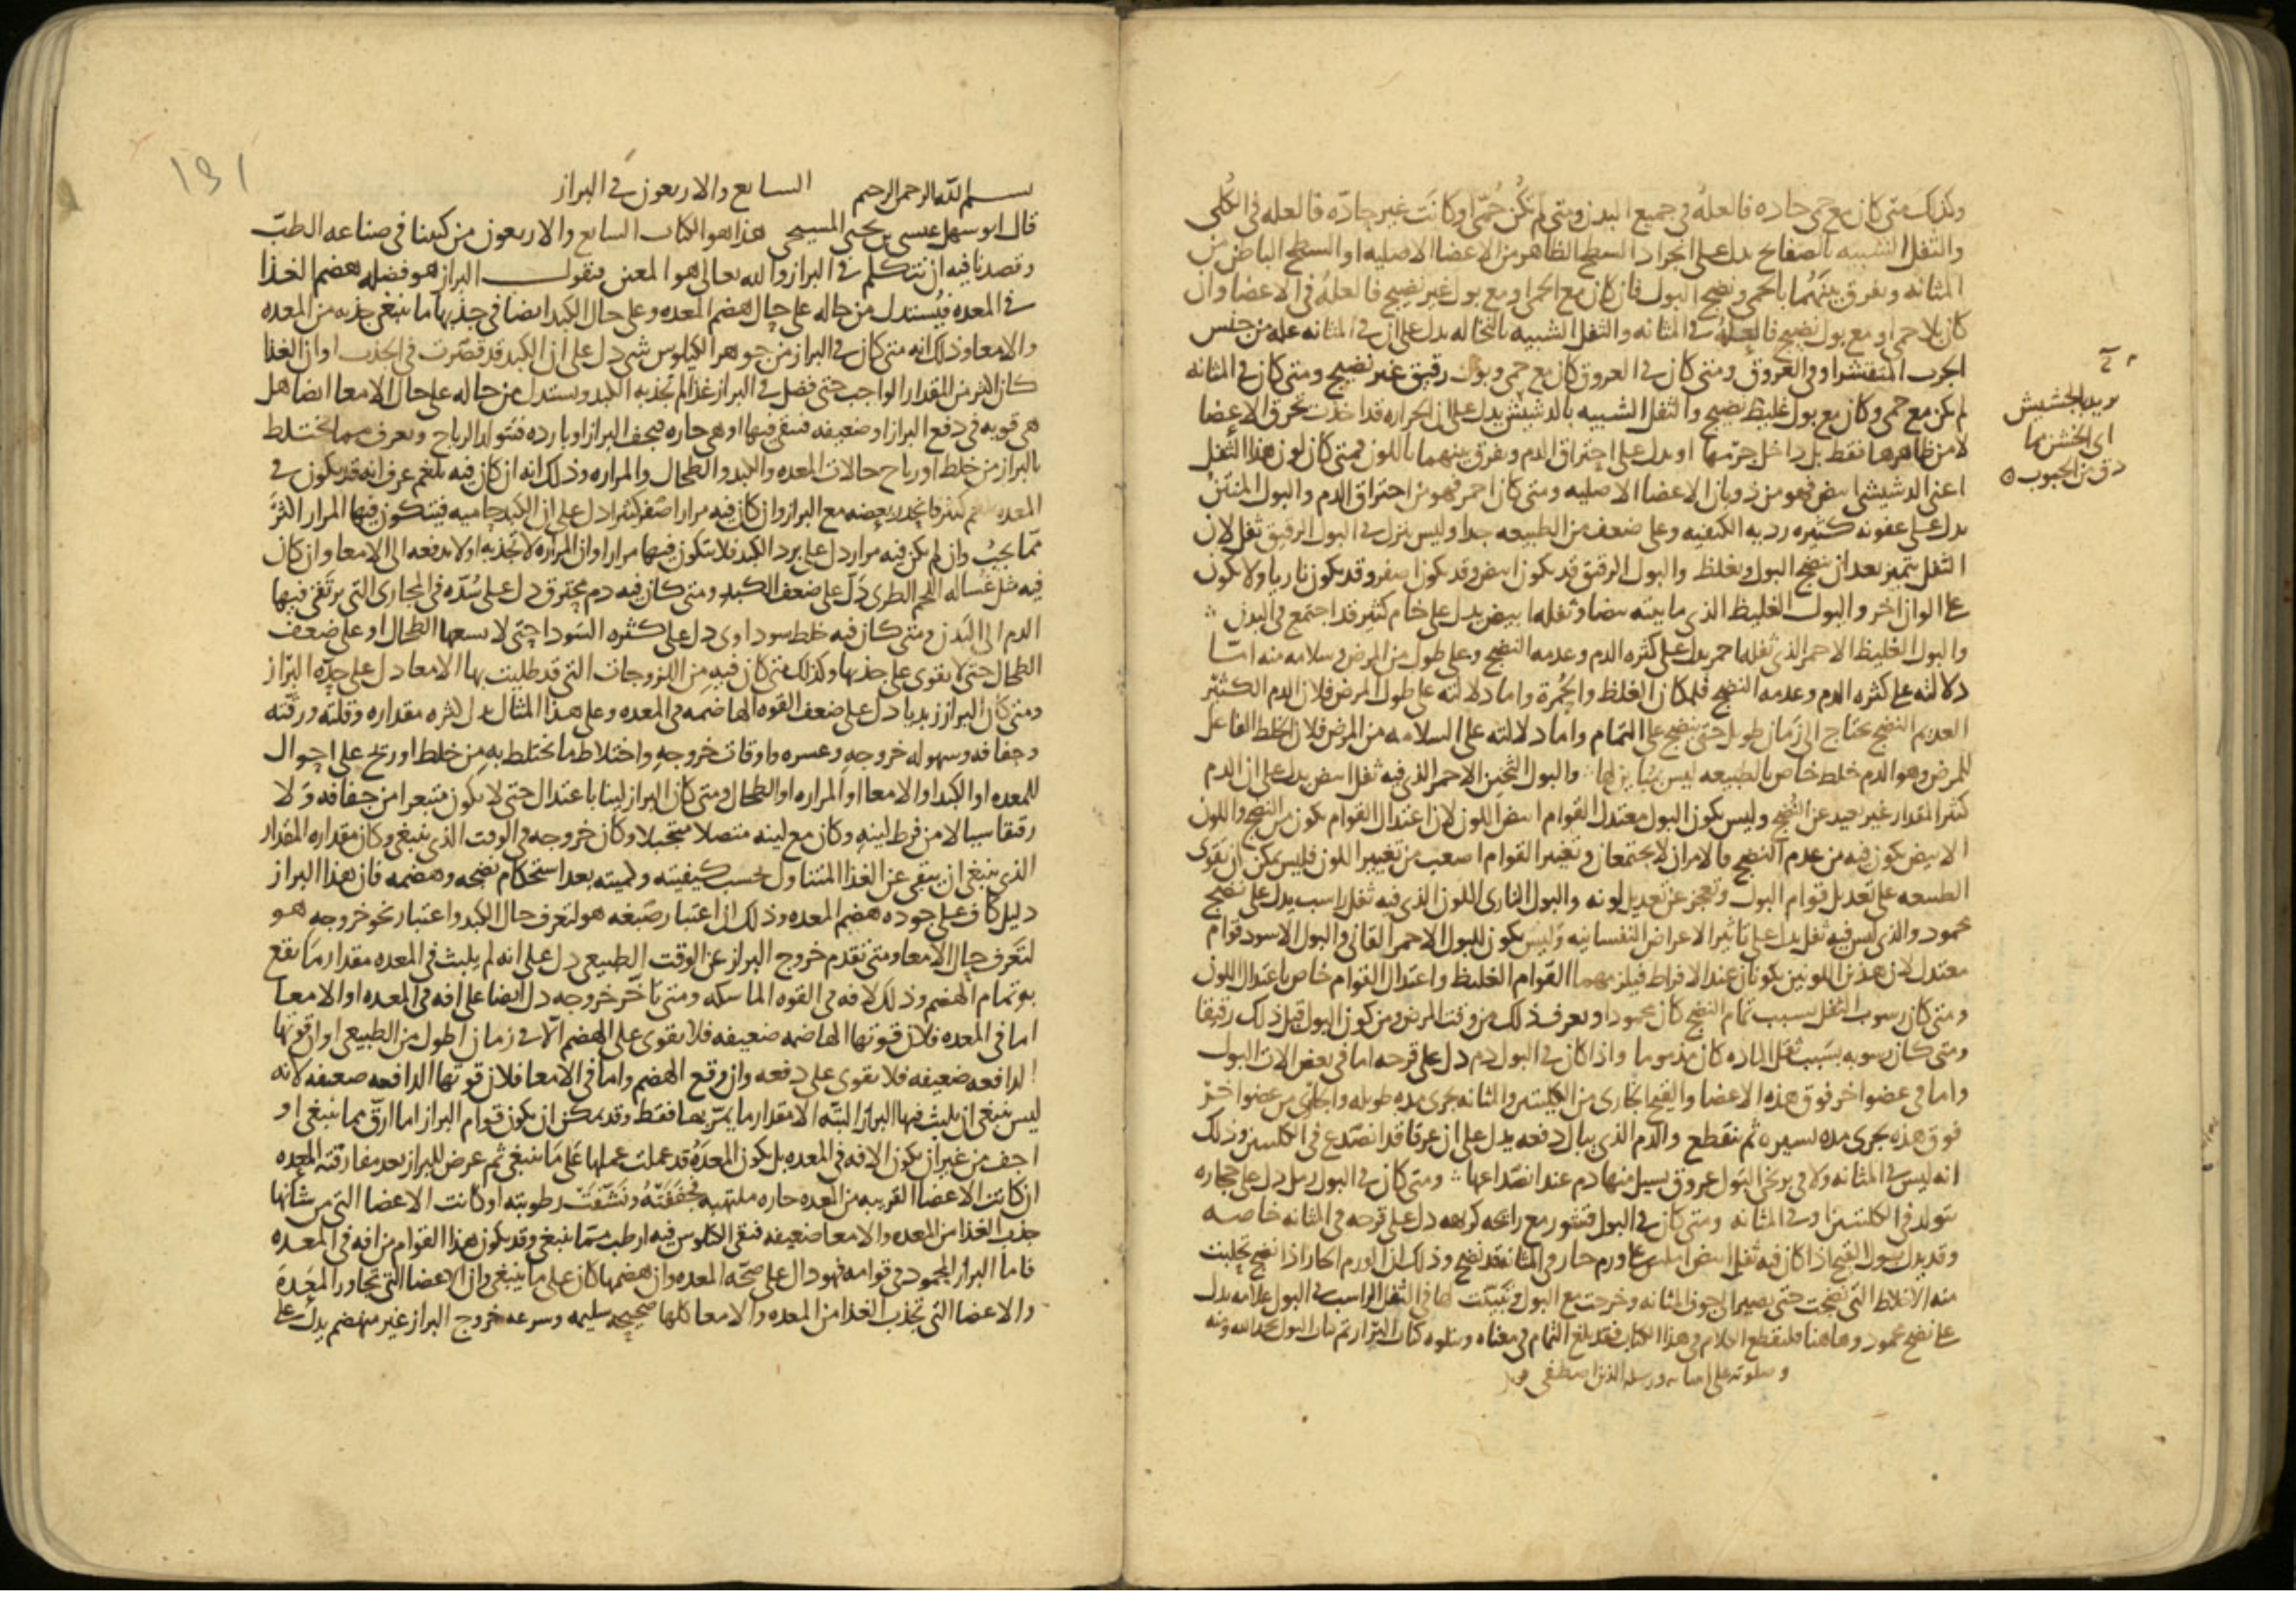 وكذلك متى كان مع حمى حاده فالعله في جميع البدن ومتى لم تكن حمى او كانت غير حادّه فالعله في الكلى
والثفل الشبيه بالصفايح يدل على انجراد السطح الظاهر من الاعضا الاصليه او السطح الباطن من
المثانه ويفرق بينهما بالحمى ونضج البول فان كان مع الحمى او مع بول غير نضيج فالعله في الاعضا وان
كان بلا حمى او مع بول نضيج فالعله في المثانه والثفل الشبيه بالنخاله يدل على ان في المثانه عله من جنس
الجرب المتقشر او في العروق ومتى كان في العروق كان مع حمى وبول رقيق غير نضيج ومتى كان في المثانه
لم يكن مع حمى وكان مع بول غليظ نضيج والثفل الشبيه بالدشيش يدل على ان الحراره قد اخذت تحرق الاعضا
لا من ظاهرها فقط بل داخل جرمها او يدل على احتراق الدم ويفرق بينهما باللون فمتى كان لون هذا الثفل
اعنى الدشيشى ابيض فهو من ذوبان الاعضا الاصليه ومتى كان احمر فهو من احتراق الدم والبول المنتن
يدل على عفونه كثيره رديه الكيفيه وعلى ضعف من الطبيعه جدا وليس ينزل في البول الرقيق ثفل لان
الثفل يتميز بعد ان ينضج البول ويغلظ والبول الرقيق قد يكون ابيض وقد يكون اصفر وقد يكون ناريا ولا يكون
على الوان اخر والبول الغليظ الذى مايته بيضا وثفله ابيض يدل على خام كثير قد اجتمع في البدن
والبول الغليظ الاحمر الذى ثفله احمر يدل على كثره الدم وعدمه النضج وعلى طول من المرض وسلامه منه امّا
دلالته على كثره الدم وعدمه النضج فلمكان الغلظ والحُمرة واما دلالته على طول المرض فلان الدم الكثير
العديم النضج يحتاج الى زمان طويل حتى ينضج على التمام واما دلالته على السلامه من المرض فلان الخلط الفاعل
للمرض وهو الدم خلط خاص بالطبيعه ليس بمباين لها والبول الثخين الاحمر الذى فيه ثفل ابيض يدل على ان الدم
كثير المقدار غير بعيد عن النضج وليس يكون البول معتدل القوام ابيض اللون لان اعتدال القوام يكون من النضج واللون
الابيض يكون فيه من عدم النضج فالامران لا يجتمعان وتغيير القوام اصعب من تغيير اللون فليس يمكن ان تقوى
الطبيعه على تعديل قوام البول وتعجز عن تعديل لونه والبول النارى اللون الذى فيه ثفل راسب يدل على نضج
محمود والذى ليس فيه ثفل يدل على تاثير الاعراض النفسانيه وليس يكون للبول الاحمر القانى والبول الاسود قوام
معتدل لان هذين اللونين يكونان عند الافراط فيلزمهما القوام الغليظ واعتدال القوام خاص باعتدال اللون
ومتى كان رسوب الثفل بسبب تمام النضج كان محمودا ويعرف ذلك من وقت المرض ومن كون البول قبل ذلك رقيقا
ومتى كان رسوبه بسبب ثقل الماده كان مذموما واذا كان في البول دم دل على قرحه اما في بعض الات البول
واما في عضو اخر فوق هذه الاعضا والقيح الجارى من الكليتين والمثانه يجرى مده طويله والجارى من عضو اخر
فوق هذه يجرى مده يسيره ثم ينقطع والدم الذى يبال دفعه يدل على ان عرقا قد انصدع في الكليتين وذلك
انه ليس في المثانه ولا في بربخى البول عروق يسيل منها دم عند انصداعها ومتى كان في البول رمل دل على حجاره
تتولد في الكليتين او في المثانه ومتى كان في البول قشور مع رايحه كريهه دل على قرحه في المثانه خاصه
وقد يدل بول القيح اذا كان فيه ثفل ابيض املس على ورم حار في المثانه قد نضج وذلك ان الورم الحار اذا نضج تحلبت
منه الاخلاط التى نضجت حتى يصير الى جوف المثانه وخرجت مع البول في الثفل الراسب في البول علامه يدل
على نضج محمود وهاهنا فلنقطع الكلام في هذا الكتاب فقد بلغ التمام في معناه ويتلوه كتاب البراز تم كتاب البول بحمد الله ومنه
وصلوته على انبيايه ورسله الذين اصطفى
يريد الجشيش
اى الخشن مما
دق من الحبوب
١٩١
بسم الله الرحمن الرحيم السابع والاربعون في البراز
قال ابو سهل عيسى بن يحيى المسيحى هذا هو الكتاب السابع والاربعون من كتبنا في صناعه الطبّ
وقصدنا فيه ان نتكلم في البراز والله تعالى هو المعين فنقول البراز هو فضله هضم الغذا
في المعده فيُستدل من حاله على حال هضم المعده وعلى حال الكبد ايضا في جذبها ما ينبغى جذبه من المعده
والامعا وذلك انه متى كان في البراز من جوهر الكيلوس شى دل على ان الكبد قد قصّرت في الجذب او ان الغذا
كان اكثر من المقدار الواجب حتى فضل في البراز غذا لم تجذبه الكبد ويستدل من حاله على حال الامعا ايضا هل
هى قويه في دفع البراز او ضعيفه فيبقى فيها او هى حاره فيجف البراز او بارده فتتولد الرياح ويعرف مما يختلط
بالبراز من خلط او رياح حالات المعده والكبد والطحال والمراره وذلك انه ان كان فيه بلغم عرف انه قد يكون في
المعده بلغم كثير فانحدر بعضه مع البراز وان كان فيه مرار اصفر كثير دل على ان الكبد حاميه فيتكون فيها المرار اكثر
مما يجب وان لم يكن فيه مرار دل على برد الكبد فلا يتكون فيها مرار او ان المراره لا تجذبه او لا تدفعه الى الامعا وان كان
فيه مثل غساله اللحم الطرى دلّ على ضعف الكبد ومتى كان فيه دم محترق دل على سُدّه في المجارى التى يرتقى فيها
الدم الى البدن ومتى كان فيه خلط سوداوى دل على كثره السودا حتى لا يسعها الطحال او على ضعف
الطحال حتى لا يقوى على جذبها وكذلك متى كان فيه من اللزوجات التى قد طليت بها الامعا دل على حدّه البراز
ومتى كان البراز زبديا دل على ضعف القوه الهاضمه في المعده وعلى هذا المثال يدل كثره مقداره وقلته ورقته
وجفافه وسهوله خروجه وعسره واوقات خروجه واختلاط ما يختلط به من خلط او ريح على احوال
للمعده او الكبد او الامعا او المراره او الطحال ومتى كان البراز لينا باعتدال حتى لا يكون متبعرا من جفافه ولا
رقيقا سيالا من فرط لينه وكان مع لينه متصلا متحبلا وكان خروجه في الوقت الذى ينبغى وكان مقداره المقدار
الذى ينبغى ان يبقى عن الغذا المتناول بحسب كيفيته وكميته بعد استحكام نضجه وهضمه فان هذا البراز
دليل كاف على جوده هضم المعده وذلك ان اعتبار صبغه هو لتعرف حال الكبد واعتبار نحو خروجه هو
لتعرف حال الامعا ومتى تقدم خروج البراز عن الوقت الطبيعى دل على انه لم يلبث في المعده مقدار ما يقع
به تمام الهضم وذلك لافه في القوه الماسكه ومتى تاخر خروجه دل ايضا على افه في المعده او الامعا
اما في المعده فلان قوتها الهاضمه ضعيفه فلا يقوى على الهضم الّا في زمان اطول من الطبيعى او ان قوتها
الدافعه ضعيفه فلا يقوى على دفعه وان وقع الهضم واما في الامعا فلان قوتها الدافعه ضعيفه لانه
ليس ينبغى ان يلبث فيها البراز البتّه الا مقدار ما يمرّ بها فقط وقد يمكن ان يكون قوام البراز اما ارقّ مما ينبغى او
اجف من غير ان يكون الافه في المعده بل يكون المعده قد عملت عملها على ما ينبغى ثم عرض للبراز بعد مفارقته المعده
ان كانت الاعضا القريبه من المعده حاره ملتهبه فجففته ونشّفت رطوبته او كانت الاعضا التى من شانها
جذب الغذا من المعده والامعا ضعيفه فبقى الكيلوس فيه ارطب ممّا ينبغى وقد يكون هذا القوام من افه في المعده
فاما البراز المحمود في قوامه فهو دال على صحّه المعده وان هضمها كان على ما ينبغى وان الاعضا التى تجاور المعده
والاعضا التى تجذب الغذا من المعده والامعا كلها صحيحه سليمه وسرعه خروج البراز غير منهضم يدل على